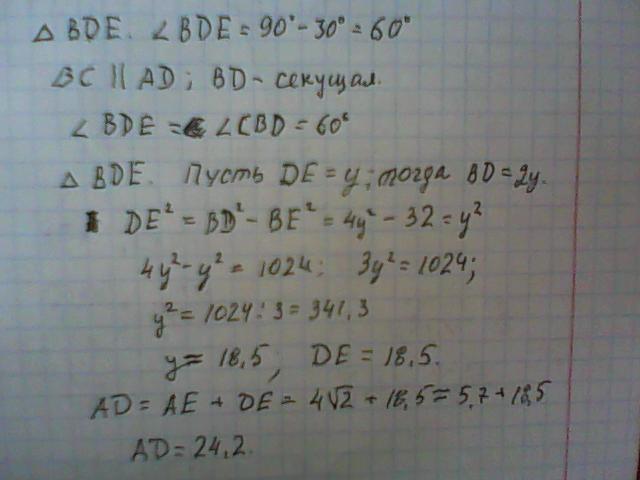 △ BDE. ∠ BDE = 90° - 30° = 60°
BC || AD; BD - секущая.
∠ BDE = ∠ CBD = 60°
△ BDE. Пусть DE = y; тогда BD = 2y.
DE² = BD² - BE² = 4y² - 32 = y²
4y² - y² = 1024; 3y² = 1024;
y² = 1024 : 3 = 341,3
y ≈ 18,5; DE = 18,5.
AD = AE + DE = 4√2 + 18,5 ≈ 5,7 + 18,5
AD = 24,2.